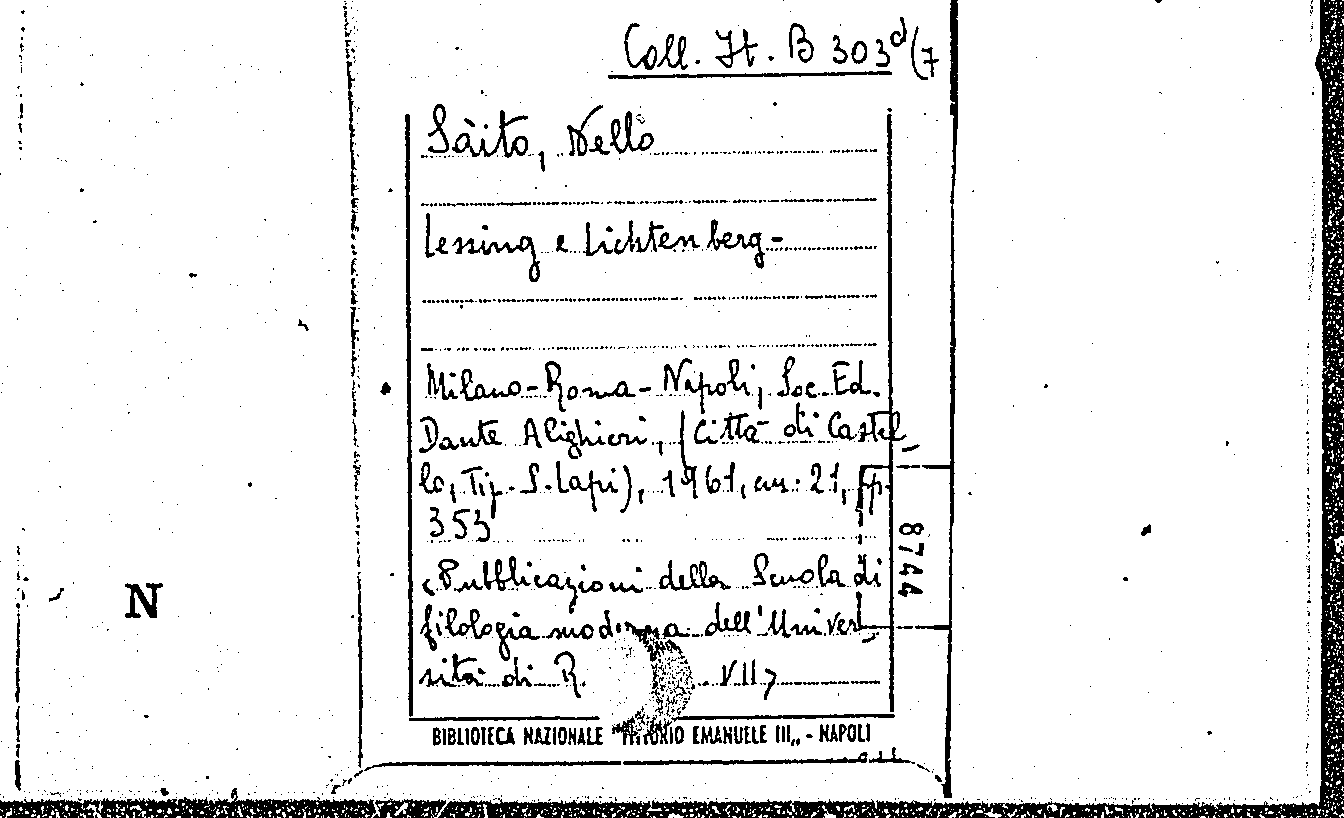 Coll. It. B 303d(7
Sàito, Nello
Lessing e Lichtenberg-
Milano-Roma-Napoli, Soc. Ed.
Dante Alighieri, (Città di Castel
lo, Tip. S. Lapi), 1961, cm. 21, pp.
353
<Pubblicazioni della Scuola di
filologia moderna dell'Univer
sità di R. VII>
8744
N
BIBLIOTECA NAZIONALE "VITTORIO EMANUELE III„ - NAPOLI